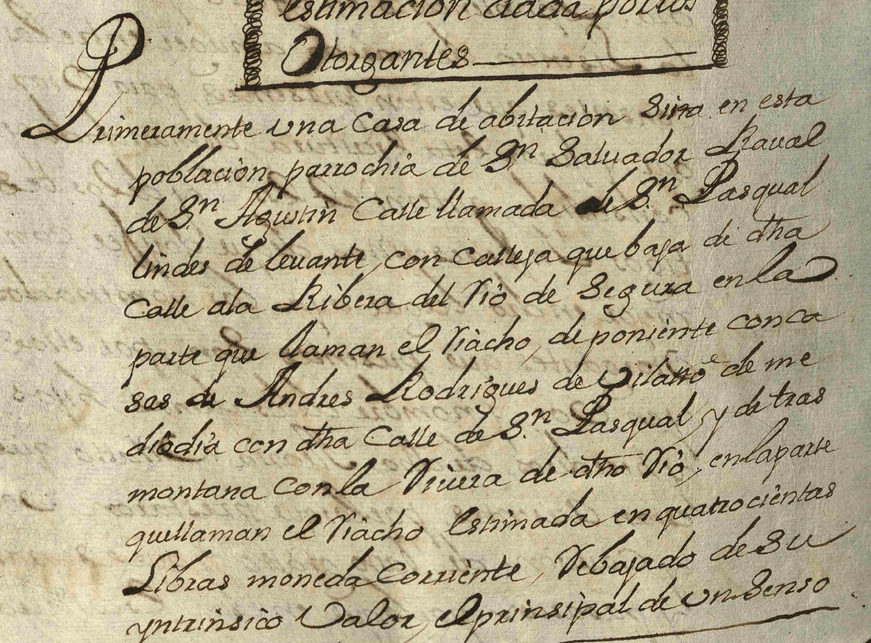 estimacion dada por los
Otorgantes
Primeramente una Casa de abitacion Sita en esta
poblacion parrochia de Sn Salvador Raval
de Sn Agustin Calle llamada de Sn Pasqual
lindes de levante, con Calleja que baja de dha
Calle ala Ribera del rio de Segura en la
parte que llaman el riacho, de poniente con ca
sas de Andres Rodrigues de de me
diodia con dha Calle de Sn Pasqual y de tras
montana con la rivera de dho rio, en la parte
que llaman el riacho Estimada en quatrocientas
Libras moneda Corriente, rebajado de su
yntrinsico Valor, el prinsipal de un Senso